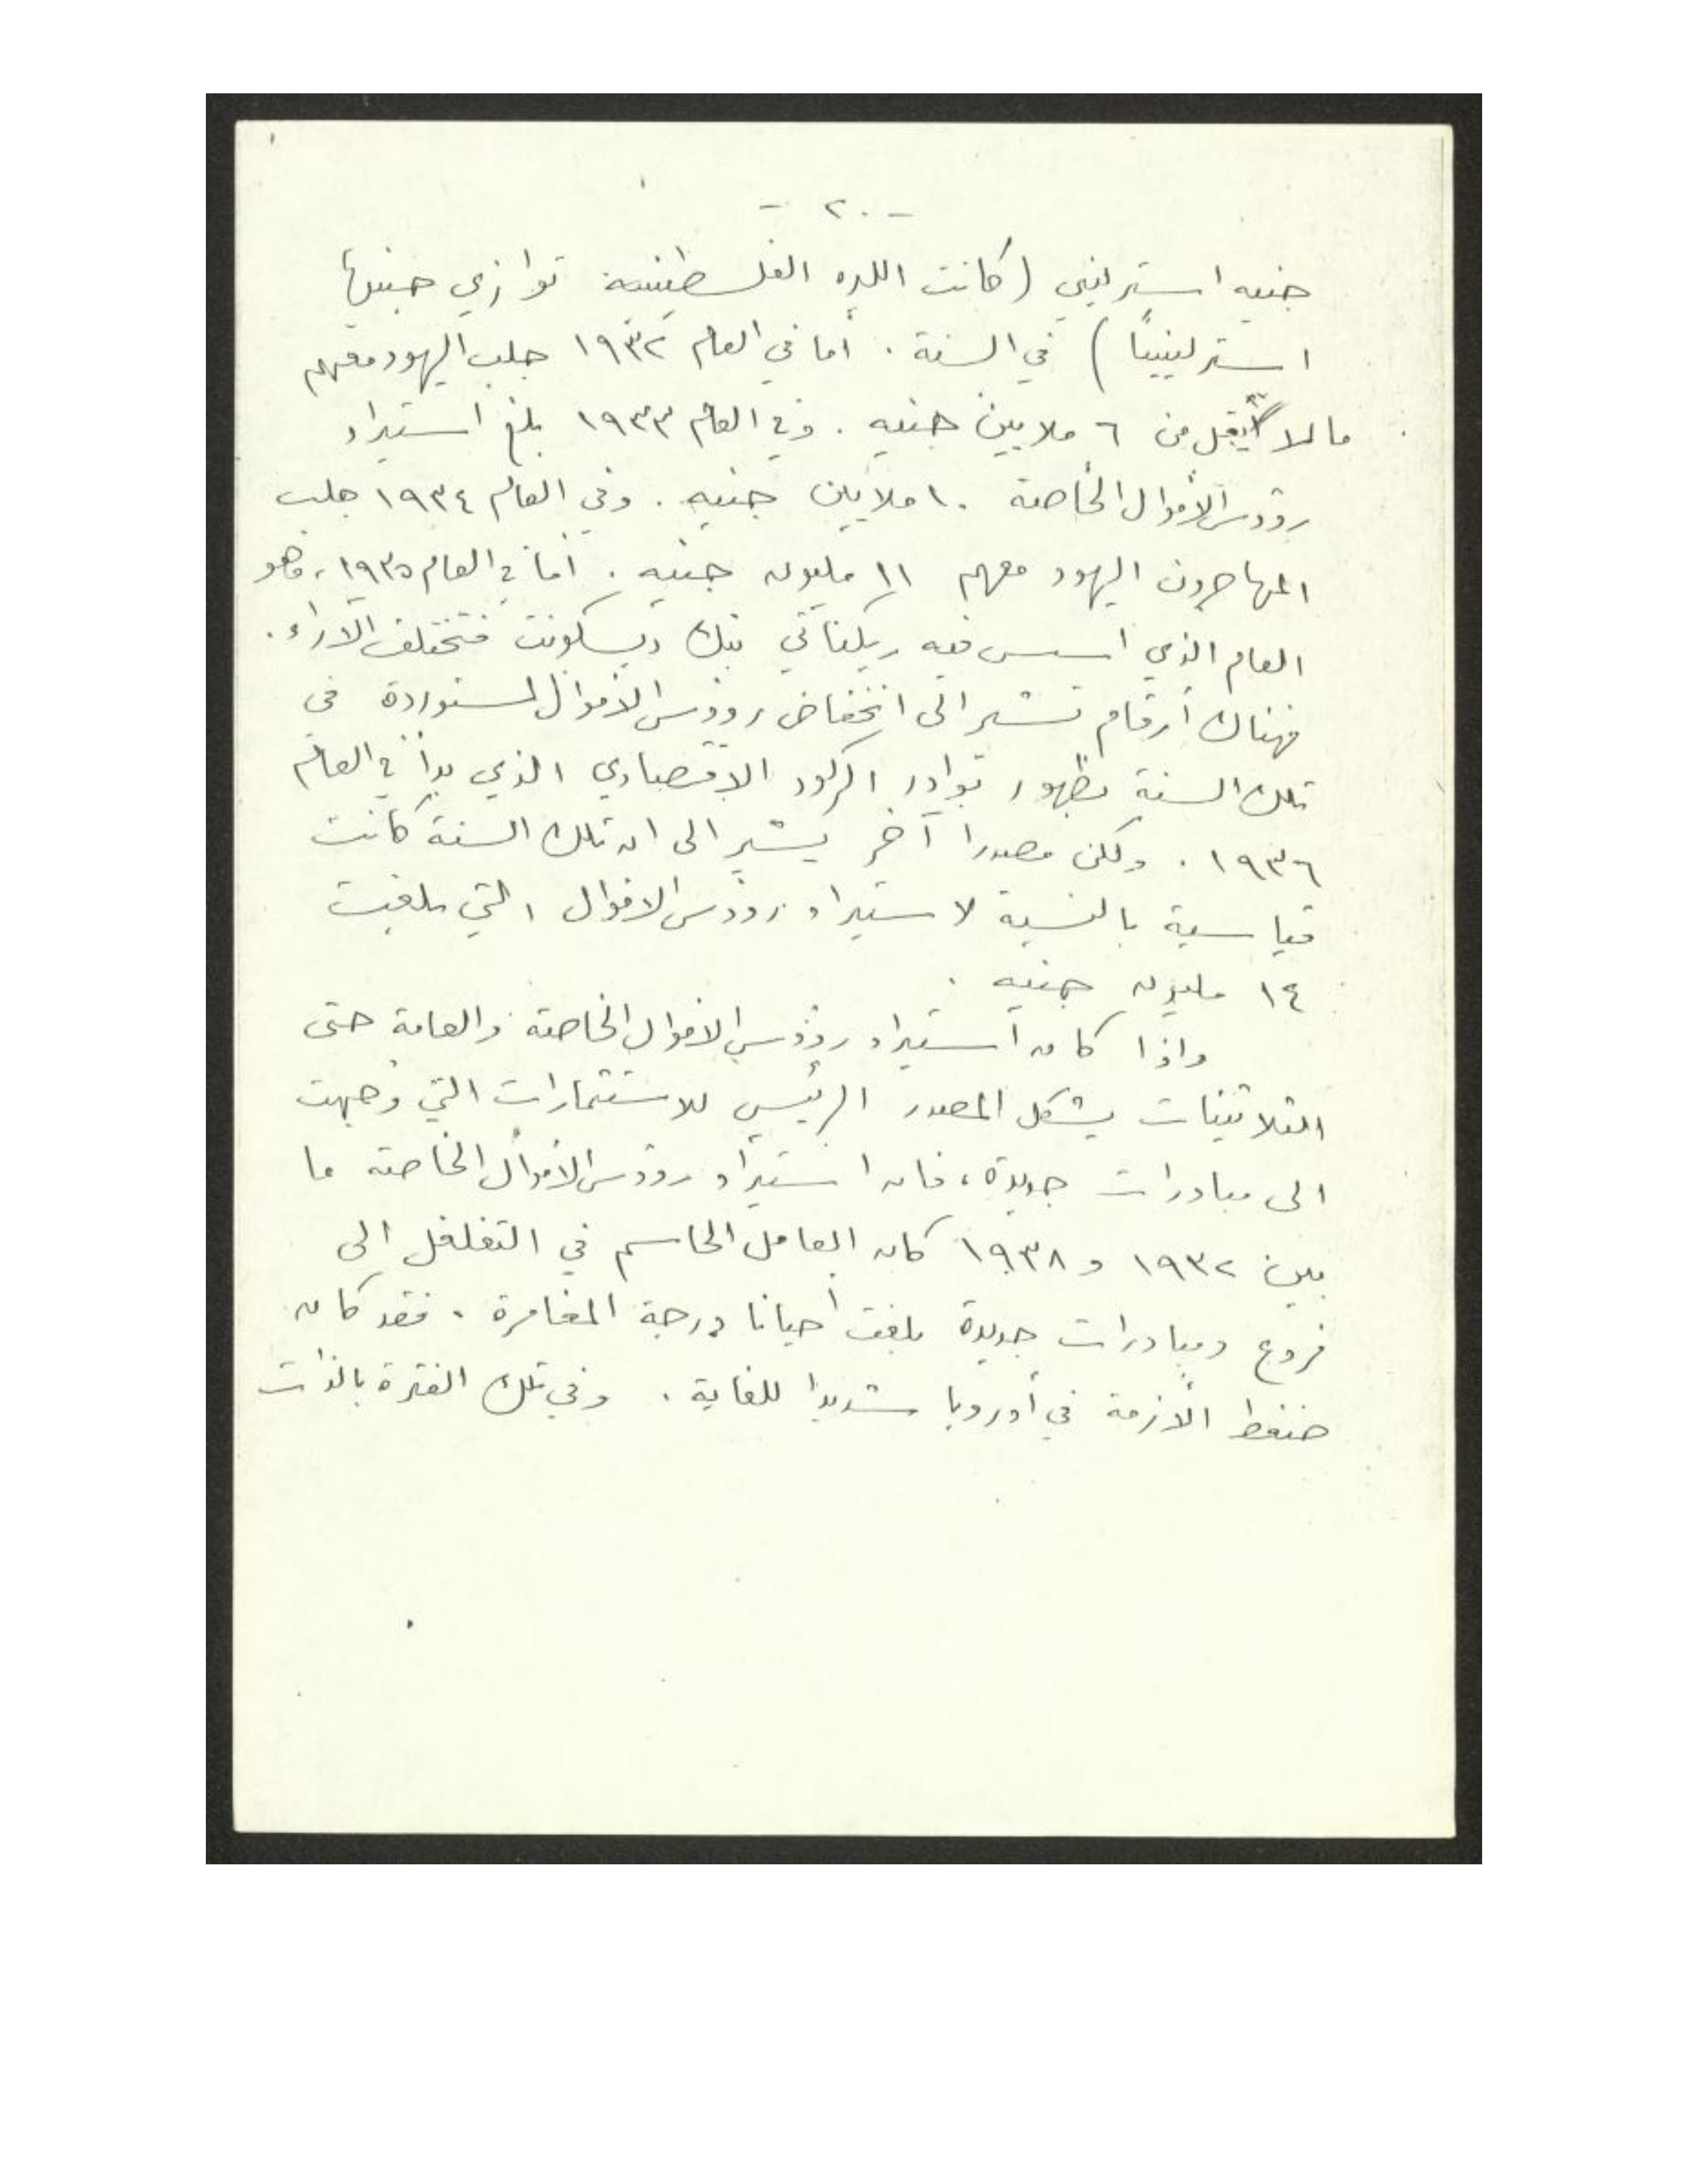 - ٢٠ -
جنيه استرليني (كانت الليره الفلسطينية توازي جنيها
استرلينياً) في السنة. أما في العام ١٩٣٢ جلب اليهود معهم
ما لا يقل من ٦ ملايين جنيه. وفي العام ١٩٣٣ بلغ استيراد
رؤوس الأموال الخاصة ١٠ ملايين جنيه. وفي العام ١٩٣٤ جلب
المهاجرون اليهود معهم ١١ مليون جنيه. أما في العام ١٩٣٥، وهو
العام الذي اسس فيه ريكناتي بنك ديسكونت فتختلف الآراء.
فهناك أرقام تشير الى انخفاض رؤوس الأموال المستوردة في
تلك السنة بظهور بوادر الركود الاقتصادي الذي بدأ في العام
١٩٣٦. ولكن مصدرا آخر يشير الى ان تلك السنة كانت
قياسية بالنسبة لاستيراد رؤوس الاموال التي بلغت
١٤ مليون جنيه.
واذا كان استيراد رؤوس الاموال الخاصة والعامة حتى
الثلاثينات يشكل المصدر الرئيسي للاستثمارات التي وجهت
الى مبادرات جديدة، فان استيراد رؤوس الأموال الخاصة ما
بين ١٩٣٢ و ١٩٣٨ كان العامل الحاسم في التغلغل الى
فروع ومبادرات جديدة بلغت أحيانا درجة المغامرة. فقد كان
ضغط الأزمة في أوروبا شديدا للغاية. وفي تلك الفترة بالذات